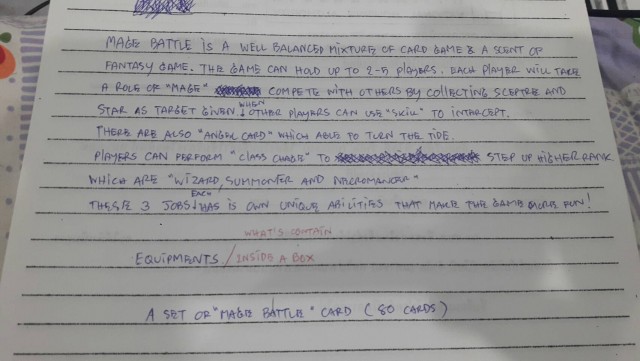 MAGE BATTLE IS A WELL BALANCED MIXTURE OF CARD GAME & A SCENT OF
FANTASY GAME. THE GAME CAN HOLD UP TO 2-5 PLAYERS. EACH PLAYER WILL TAKE
A ROLE OF "MAGE" COMPETE WITH OTHERS BY COLLECTING SCEPTRE AND
STAR AS TARGET GIVEN WHEN OTHER PLAYERS CAN USE "SKILL" TO INTERCEPT.
THERE ARE ALSO "ANGEL CARD" WHICH ABLE TO TURN THE TIDE.
PLAYERS CAN PERFORM "CLASS CHAGE" TO STEP UP HIGHER RANK
WHICH ARE "WIZARD, SUMMONER AND NECROMANCER"
THESE 3 JOBS EACH HAS IS OWN UNIQUE ABILITIES THAT MAKE THE GAME MORE FUN!
WHAT'S CONTAIN
EQUIPMENTS / INSIDE A BOX
A SET OF "MAGE BATTLE" CARD (80 CARDS)